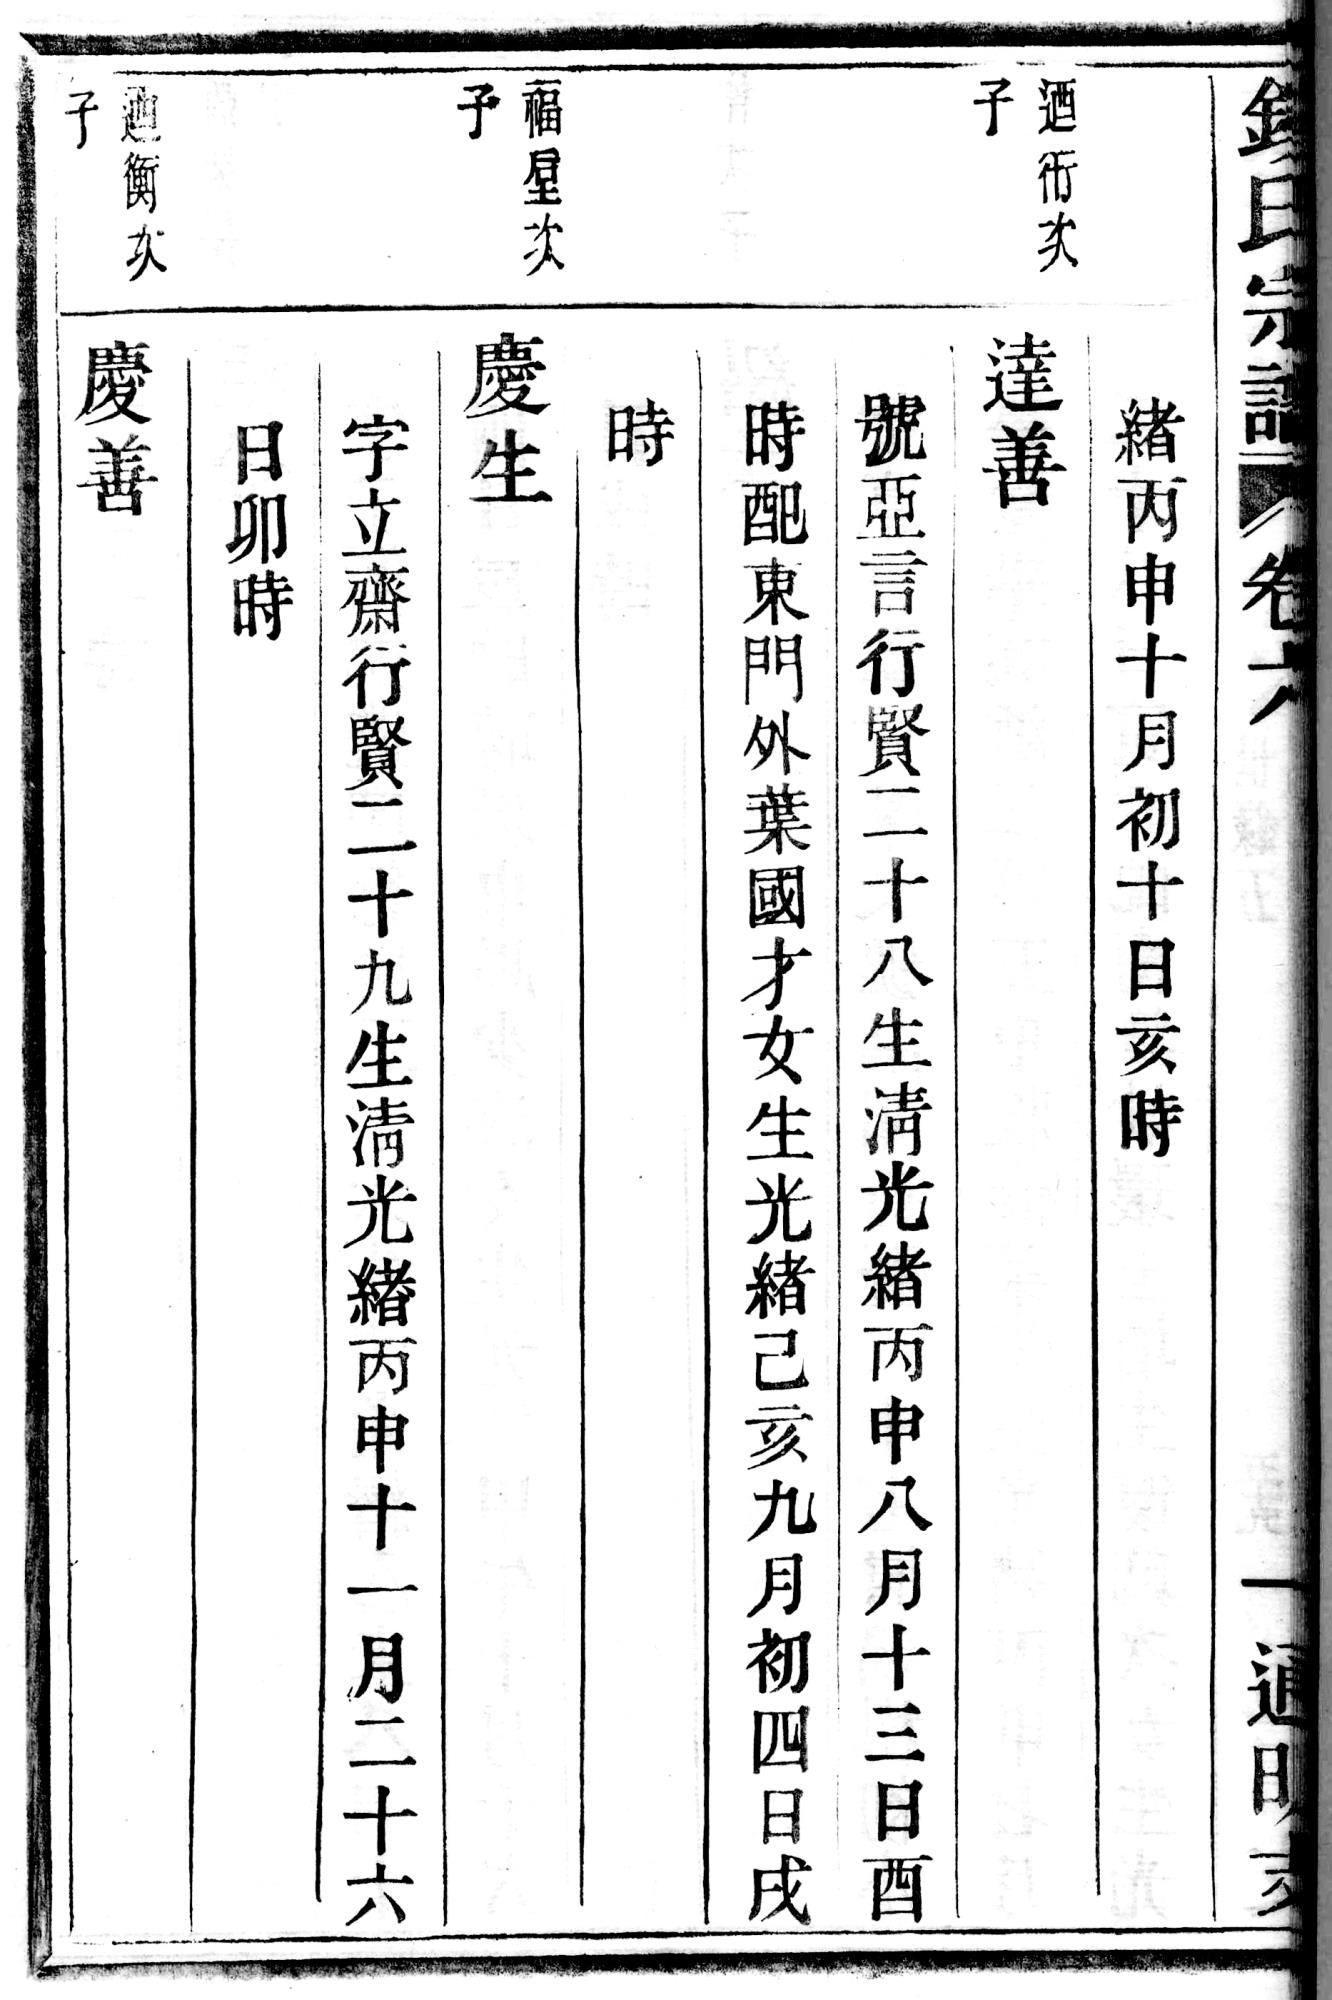 氏宗譜 卷六 一 通明支
緒丙申十月初十日亥時
迺衍次
子
達善
號亞言行賢二十八生淸光緒丙申八月十三日酉
時配東門外葉國才女生光緒己亥九月初四日戌
時
福星次
子
慶生
字立齋行賢二十九生淸光緒丙申十一月二十六
日卯時
迺衡次
子
慶善